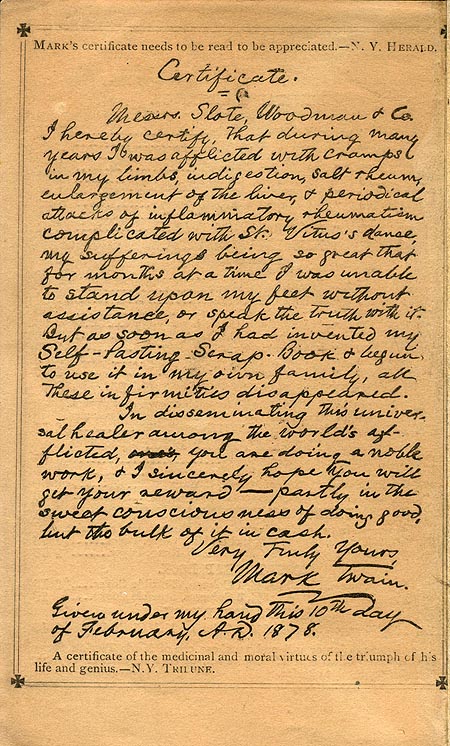 MARK'S certificate needs to be read to be appreciated.—N. Y. HERALD.
Certificate.
Messrs. Slote, Woodman & Co.
I hereby certify, That during many
years I was afflicted with cramps
in my limbs, indigestion, salt rheum,
enlargement of the liver, & periodical
attacks of inflammatory rheumatism
complicated with St. Vitus's dance,
my sufferings being so great that
for months at a time I was unable
to stand upon my feet without
assistance, or speak the truth with it.
But as soon as I had invented my
Self-Pasting Scrap-Book & begun
to use it in my own family, all
these infirmities disappeared.
In disseminating this univer-
sal healer among the world's af-
flicted, you are doing a noble
work, & I sincerely hope you will
get your reward — partly in the
sweet consciousness of doing good,
but the bulk of it in cash.
Very Truly Yours,
Mark Twain.
Given under my hand this 10th day
of February, A.D. 1878.
A certificate of the medicinal and moral virtues of the triumph of his
life and genius.—N.Y. TRILUNE.